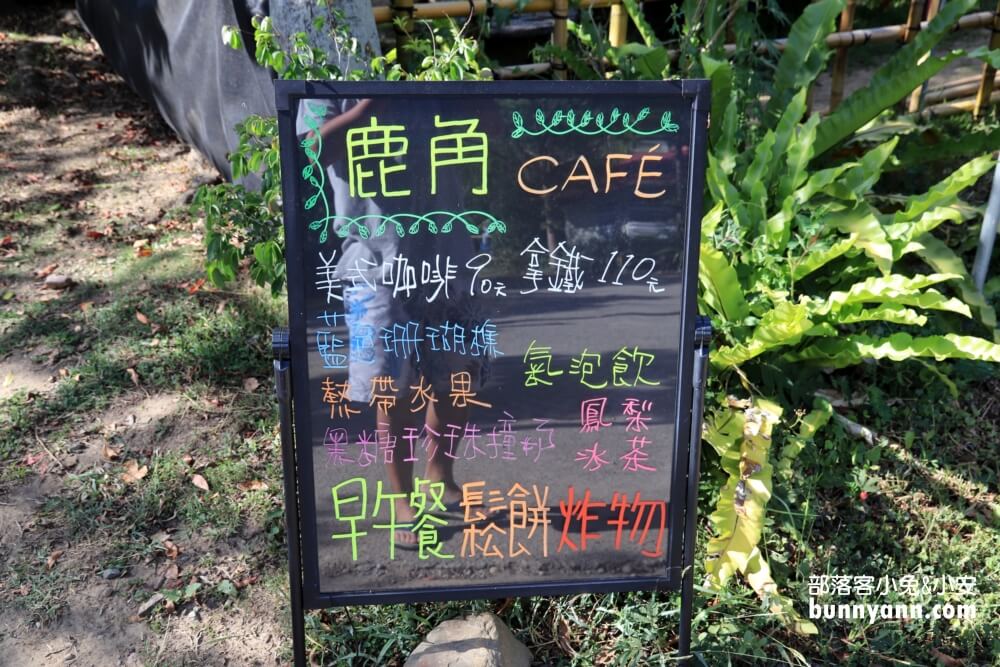 鹿角 CAFÉ
美式咖啡 90元 拿鐵 110元
藍莓珊瑚樵
氣泡飲
熱帶水果
鳳梨
冰茶
黑糖珍珠撞奶
早午餐 鬆餅 炸物
部落客小兔&小安
bunnyann.com